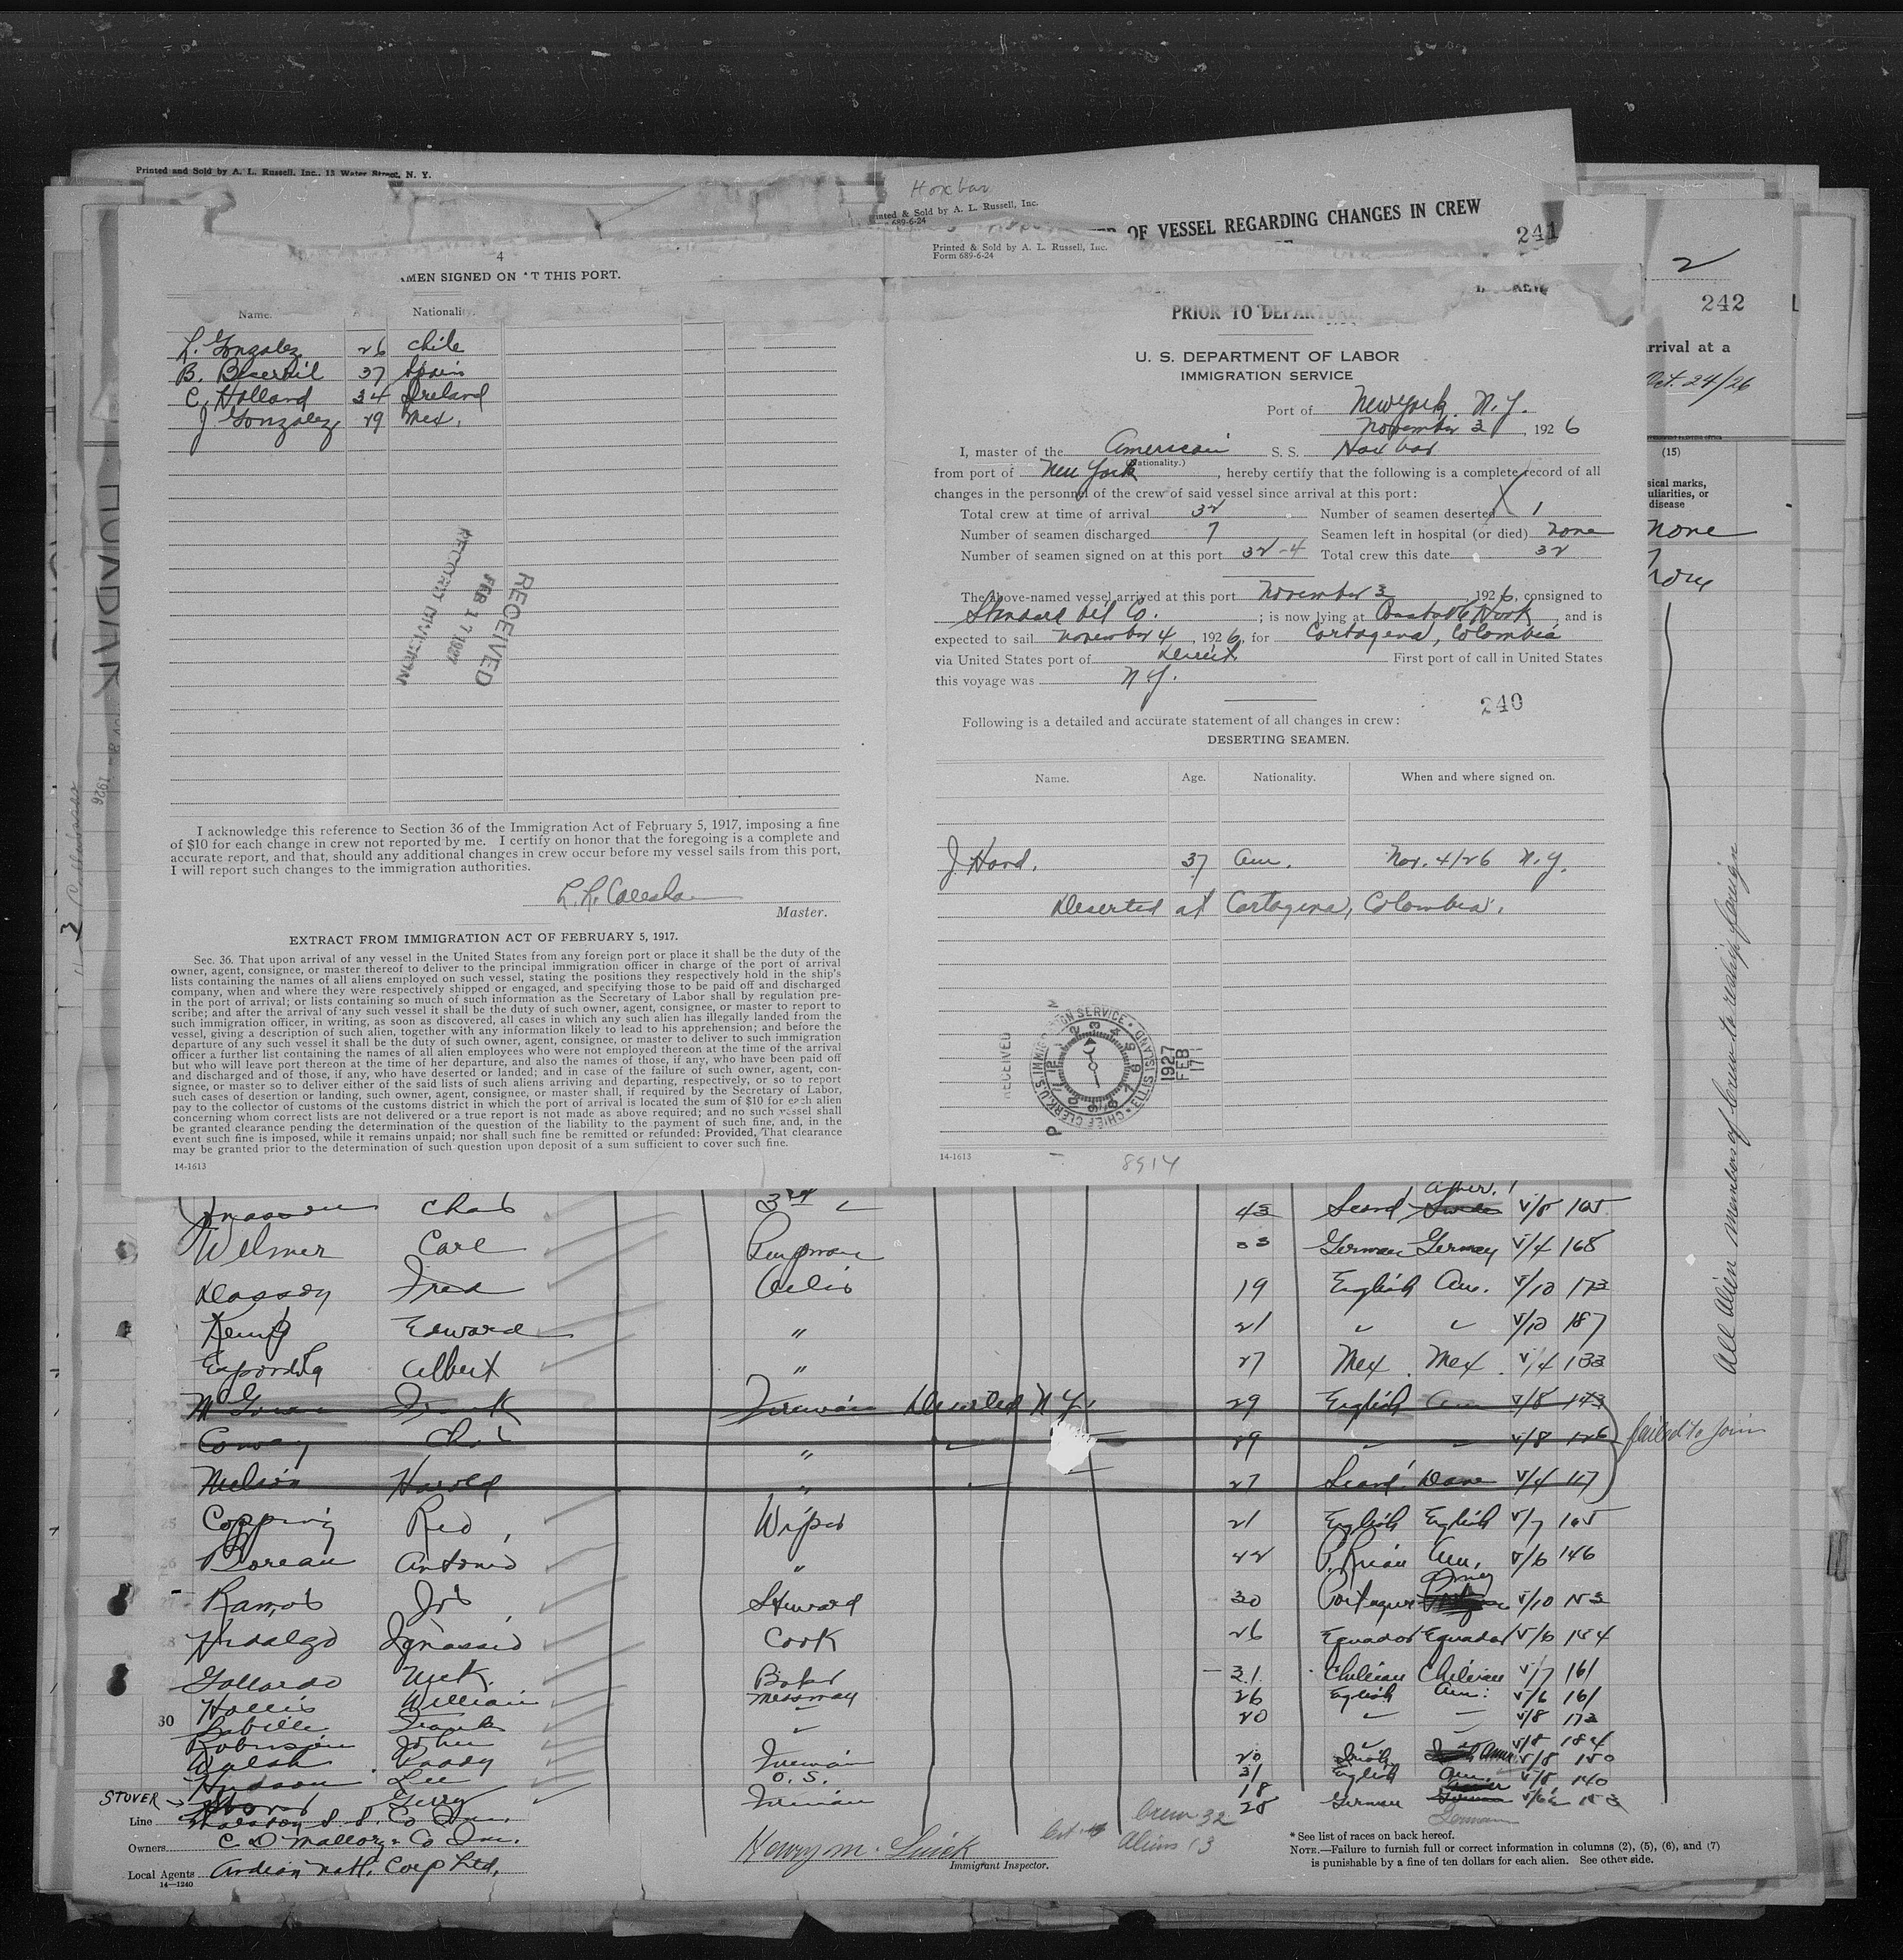 Printed and Sold by A. L. Russell, Inc., 15 Water Street, N. Y.
Hoxbar
Printed & Sold by A. L. Russell, Inc.
689-6-24
OF VESSEL REGARDING CHANGES IN CREW
241
4
AMEN SIGNED ON AT THIS PORT.
Name. Nationality.
L. Gonzalez 26 Chile
B. 37 Spain
C. Holland 34 Ireland
J Gonzalez 29 Mex.
RECEIVED
FEB 17 1927
RECORD DIVISION
I acknowledge this reference to Section 36 of the Immigration Act of February 5, 1917, imposing a fine
of $10 for each change in crew not reported by me. I certify on honor that the foregoing is a complete and
accurate report, and that, should any additional changes in crew occur before my vessel sails from this port,
I will report such changes to the immigration authorities.
L. R.
Master.
EXTRACT FROM IMMIGRATION ACT OF FEBRUARY 5, 1917.
Sec. 36. That upon arrival of any vessel in the United States from any foreign port or place it shall be the duty of the
owner, agent, consignee, or master thereof to deliver to the principal immigration officer in charge of the port of arrival
lists containing the names of all aliens employed on such vessel, stating the positions they respectively hold in the ship's
company, when and where they were respectively shipped or engaged, and specifying those to be paid off and discharged
in the port of arrival; or lists containing so much of such information as the Secretary of Labor shall by regulation pre-
scribe; and after the arrival of any such vessel it shall be the duty of such owner, agent, consignee, or master to report to
such immigration officer, in writing, as soon as discovered, all cases in which any such alien has illegally landed from the
vessel, giving a description of such alien, together with any information likely to lead to his apprehension; and before the
departure of any such vessel it shall be the duty of such owner, agent, consignee, or master to deliver to such immigration
officer a further list containing the names of all alien employees who were not employed thereon at the time of the arrival
but who will leave port thereon at the time of her departure, and also the names of those, if any, who have been paid off
and discharged and of those, if any, who have deserted or landed; and in case of the failure of such owner, agent, con-
signee, or master so to deliver either of the said lists of such aliens arriving and departing, respectively, or so to report
such cases of desertion or landing, such owner, agent, consignee, or master shall, if required by the Secretary of Labor,
pay to the collector of customs of the customs district in which the port of arrival is located the sum of $10 for each alien
concerning whom correct lists are not delivered or a true report is not made as above required; and no such vessel shall
be granted clearance pending the determination of the question of the liability to the payment of such fine, and, in the
event such fine is imposed, while it remains unpaid; nor shall such fine be remitted or refunded: Provided, That clearance
may be granted prior to the determination of such question upon deposit of a sum sufficient to cover such fine.
14-1613
Printed & Sold by A. L. Russell, Inc.
Form 689-6-24
PRIOR TO DEPARTURE
U. S. DEPARTMENT OF LABOR
IMMIGRATION SERVICE
Port of New York N. Y.
November 3, 1926
I, master of the American S. S. Hoxbar
(Nationality.)
from port of New York, hereby certify that the following is a complete record of all
changes in the personnel of the crew of said vessel since arrival at this port:
Total crew at time of arrival 32 Number of seamen deserted 1
Number of seamen discharged 7 Seamen left in hospital (or died) none
Number of seamen signed on at this port 32-4 Total crew this date 32
The above-named vessel arrived at this port November 3, 1926, consigned to
Standard Oil Co.; is now lying at Constable Hook, and is
expected to sail November 4, 1926, for Cartagena, Colombia
via United States port of Direct First port of call in United States
this voyage was N Y.
240
Following is a detailed and accurate statement of all changes in crew:
DESERTING SEAMEN.
Name. Age. Nationality. When and where signed on.
J Hand. 37 Am. Nov. 4/26 N.Y.
Deserted at Cartagena, Colombia.
RECEIVED
CHIEF CLERK U.S. IMMIGRATION SERVICE • ELLIS ISLAND
1927
FEB
17
14-1613
8914
2
242
arrival at a
Oct. 24/26
(15)
sical marks,
uliarities, or
disease
none
none
All Alien members of Crew to reship foreign
failed to join
Chas 3rd 43 Scand V/5 165
Wilmer Carl Pumpman German Germany V/4 168
Fred Oiler 19 English Am. V/10 173
Kemp Edward " 21 V/10 187
Albert " 27 Mex. Mex. V/4 133
Frank Fireman Deserted N.Y. 29 English Am V/8 143
Conway Chas " 29 V/8 126
Nelson Harold " 27 Scand. Dane V/4 117
Copping Red Wiper 21 English English V/7 165
Antonio " 42 P. Rican Am. V/6 146
Ramos Jos Steward 30 Portuguese V/10 153
Hidalgo Ignassio Cook 26 Equador Equador V/6 154
Gallardo Nick Baker 31 Chilean Chilean V/7 161
Hollis William Messman 26 English Am. V/6 161
30 Frank 20 V/8 173
Robinson John V/8 184
Walsh Paddy Fireman 20 Irish V/8 150
Hudson Lee O. S. 31 English Am. V/8 140
18
STOVER → Gerry Fireman 28 German German
Line S. S. Co Inc.
Owners C D Mallory Co Inc.
Local Agents Andian Natl. Corp Ltd.
14—1240
Henry M.
Immigrant Inspector.
Crew 32
Aliens 13
* See list of races on back hereof.
NOTE.—Failure to furnish full or correct information in columns (2), (5), (6), and (7)
is punishable by a fine of ten dollars for each alien. See other side.